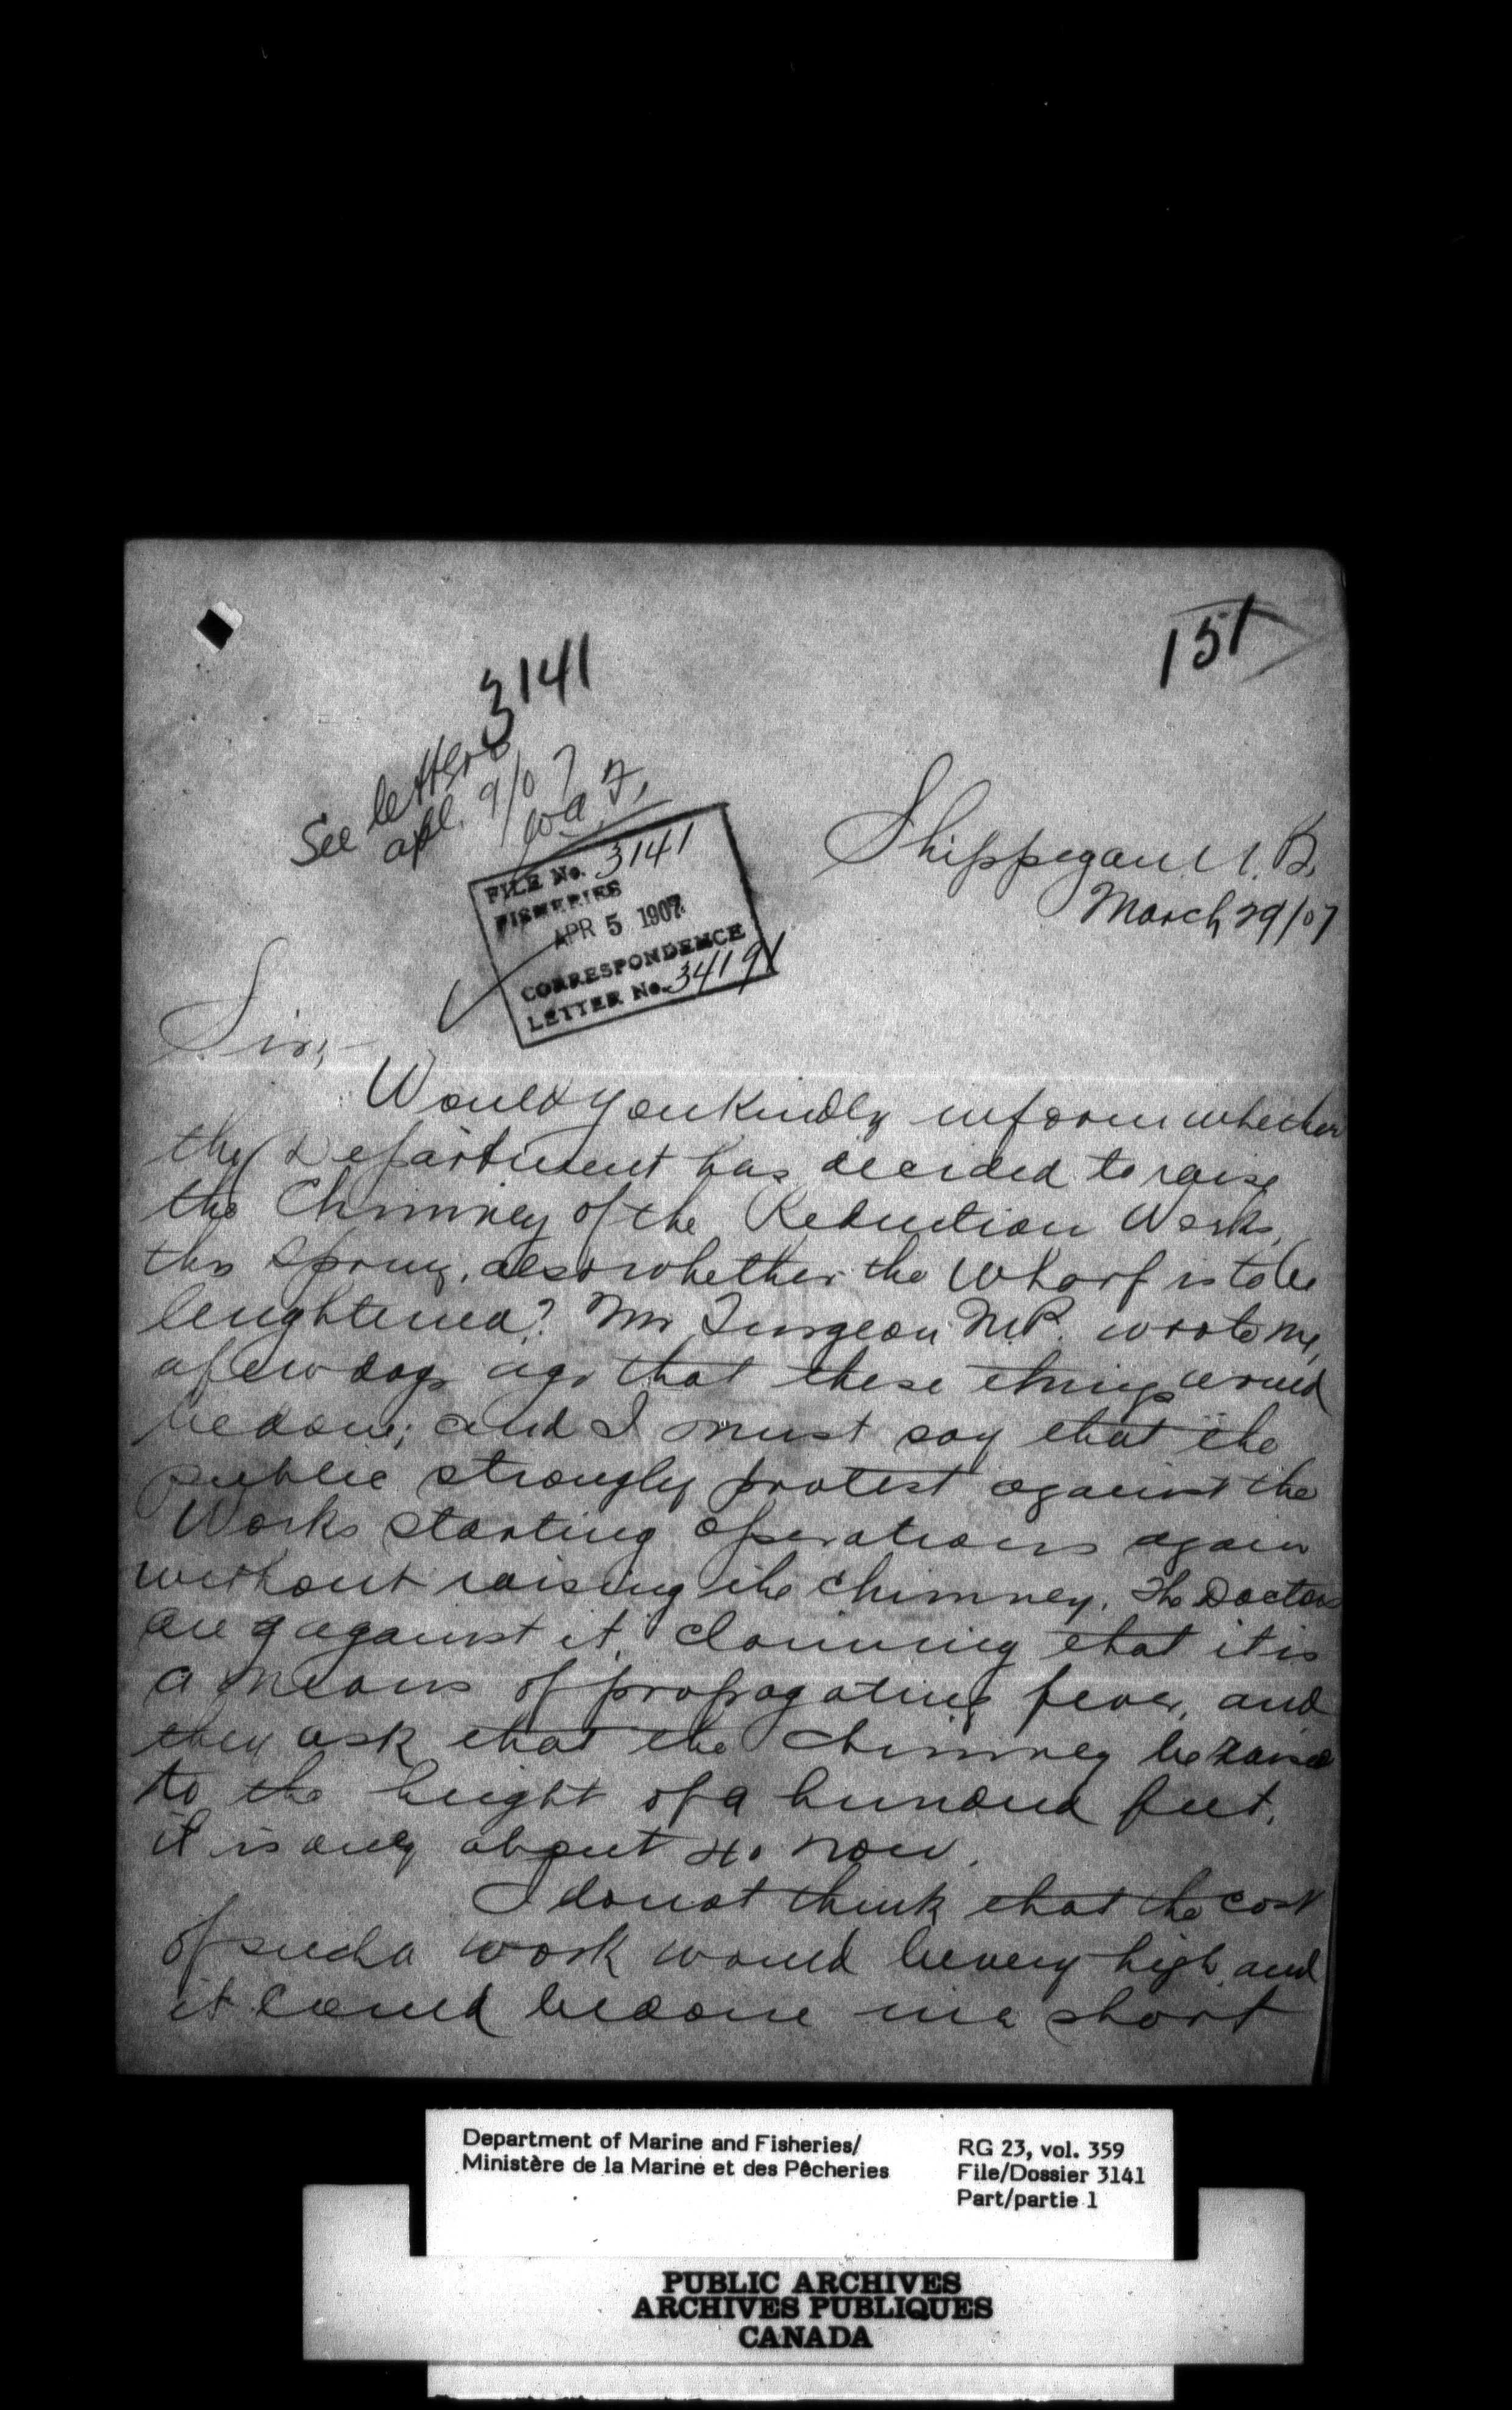 151
3141
See letters
apl. 9/07
Shippegan N. B.
March 29/07
FILE No. 3141
FISHERIES
APR 5 1907
CORRESPONDENCE
LETTER No. 34191
Sir,-
Would you kindly inform whether
the Department has decided to raise
the Chimney of the Reduction Works,
this spring, also whether the Wharf is to be
lenghtened? Mr Turgeon M.P. wrote me,
a few days ago that these things would
be done; and I must say that the
public strongly protest against the
Works starting operations again
without raising the chimney. The Doctors
are against it, claiming that it is
a means of propagating fever, and
they ask that the chimney be raised
to the height of a hundred feet,
it is only about 40 now.
I do not think that the cost
of such a work would be very high, and
it could be done in a short
Department of Marine and Fisheries/
Ministère de la Marine et des Pêcheries
RG 23, vol. 359
File/Dossier 3141
Part/partie 1
PUBLIC ARCHIVES
ARCHIVES PUBLIQUES
CANADA